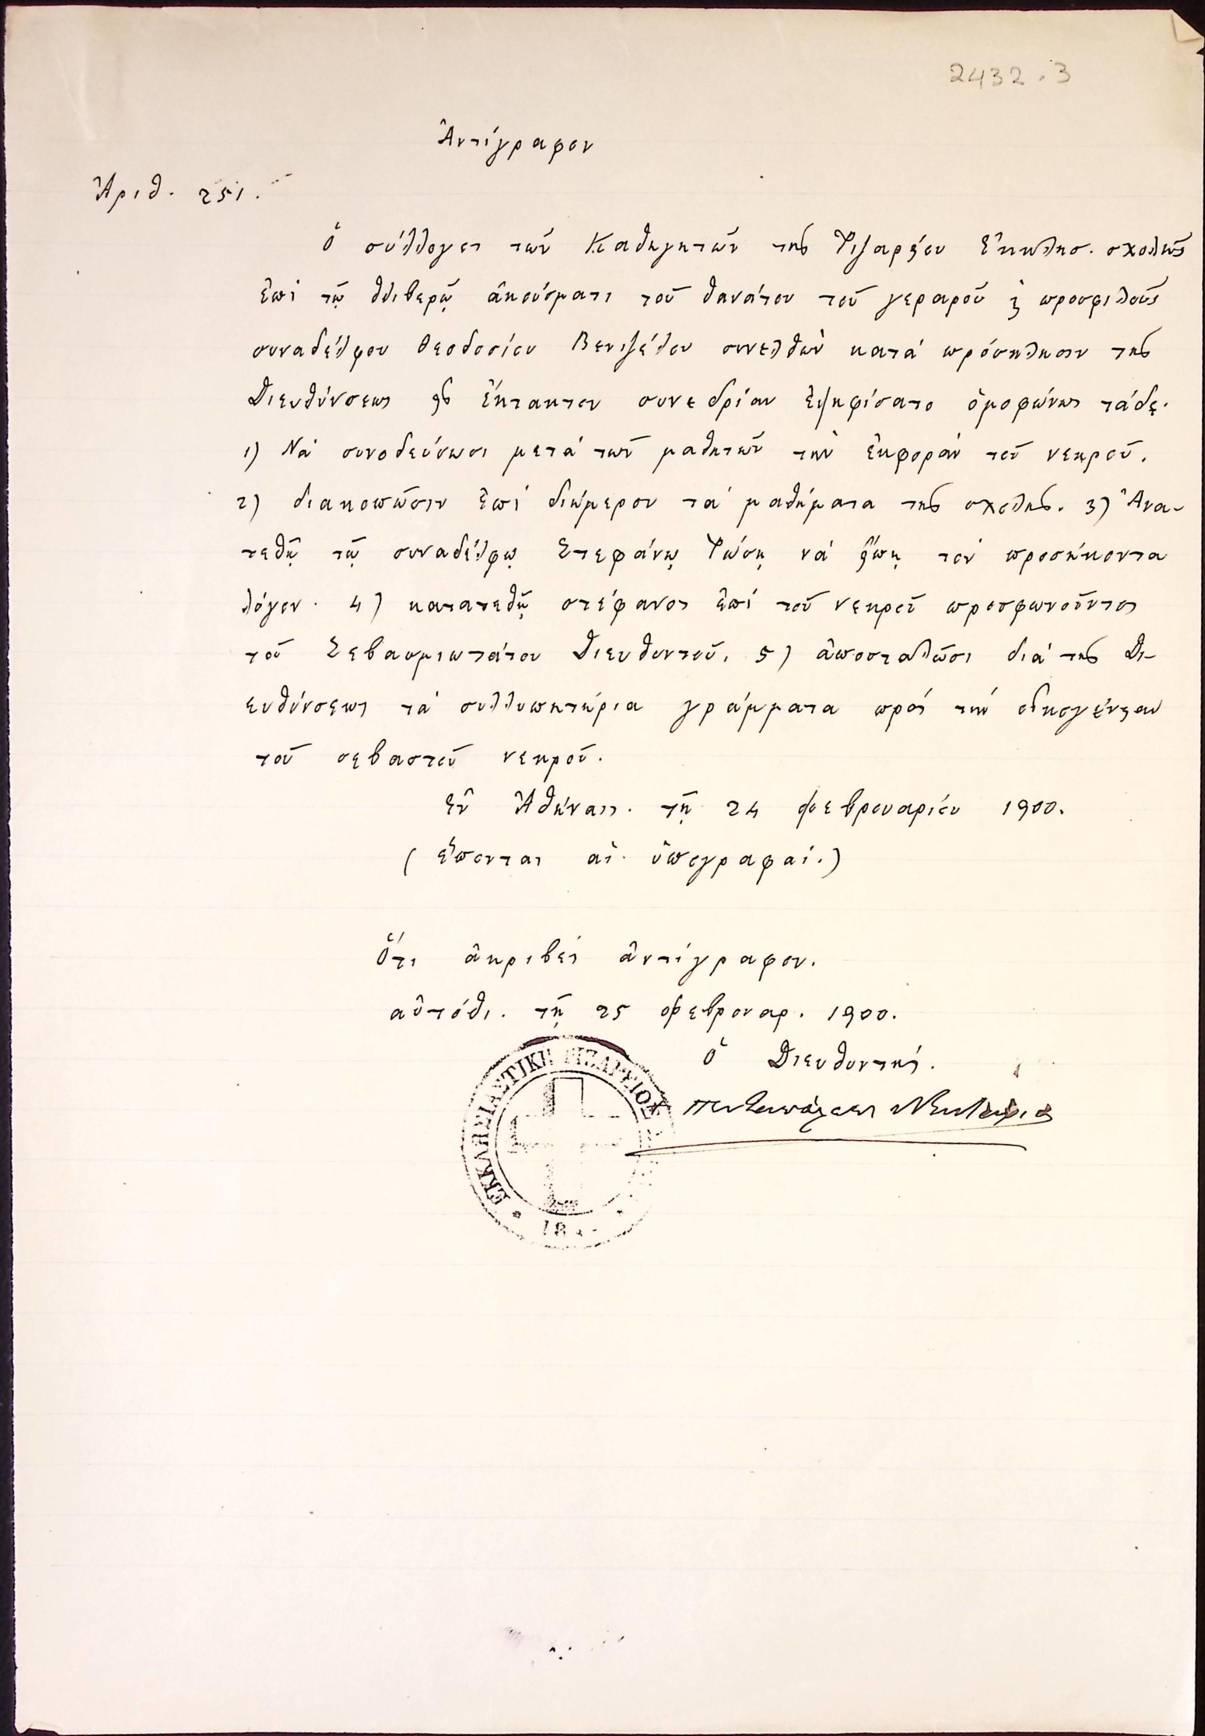 2432.3
Ἀντίγραφον
Ἀριθ. 251.
Ὁ σύλλογος τῶν Καθηγητῶν τῆς Ῥιζαρείου Ἐκκλησ. σχολῆς
ἐπὶ τῷ θλιβερῷ ἀκούσματι τοῦ θανάτου τοῦ γεραροῦ ϗ προσφιλοῦς
συναδέλφου Θεοδοσίου Βενιζέλου συνελθὼν κατὰ πρόσκλησιν τῆς
Διευθύνσεως εἰς ἔκτακτον συνεδρίαν ἐψηφίσατο ὁμοφώνως τάδε.
1) Νὰ συνοδεύσωσι μετὰ τῶν μαθητῶν τὴν ἐκφορὰν τοῦ νεκροῦ.
2) διακοπῶσιν ἐπὶ διήμερον τὰ μαθήματα τῆς σχολῆς. 3) Ἀνα-
τεθῇ τῷ συναδέλφῳ Στεφάνῳ νὰ εἴπῃ τὸν προσήκοντα
λόγον. 4) κατατεθῇ στέφανος ἐπὶ τοῦ νεκροῦ προσφωνοῦντος
τοῦ Σεβασμιωτάτου Διευθυντοῦ. 5) ἀποσταλῶσι διὰ τῆς Δι-
ευθύνσεως τὰ συλλυπητήρια γράμματα πρὸς τὴν οἰκογένειαν
τοῦ σεβαστοῦ νεκροῦ.
Ἐν Ἀθήναις. τῇ 24 φεβρουαρίου 1900.
(ἕπονται αἱ ὑπογραφαί.)
Ὅτι ἀκριβὲς ἀντίγραφον.
αὐτόθι. τῇ 25 φεβρουαρ. 1900.
Ὁ Διευθυντής.
Πενταπόλεως Νεκτάριος
ΕΚΚΛΗΣΙΑΣΤΙΚΗ ΡΙΖΑΡΕΙΟΣ